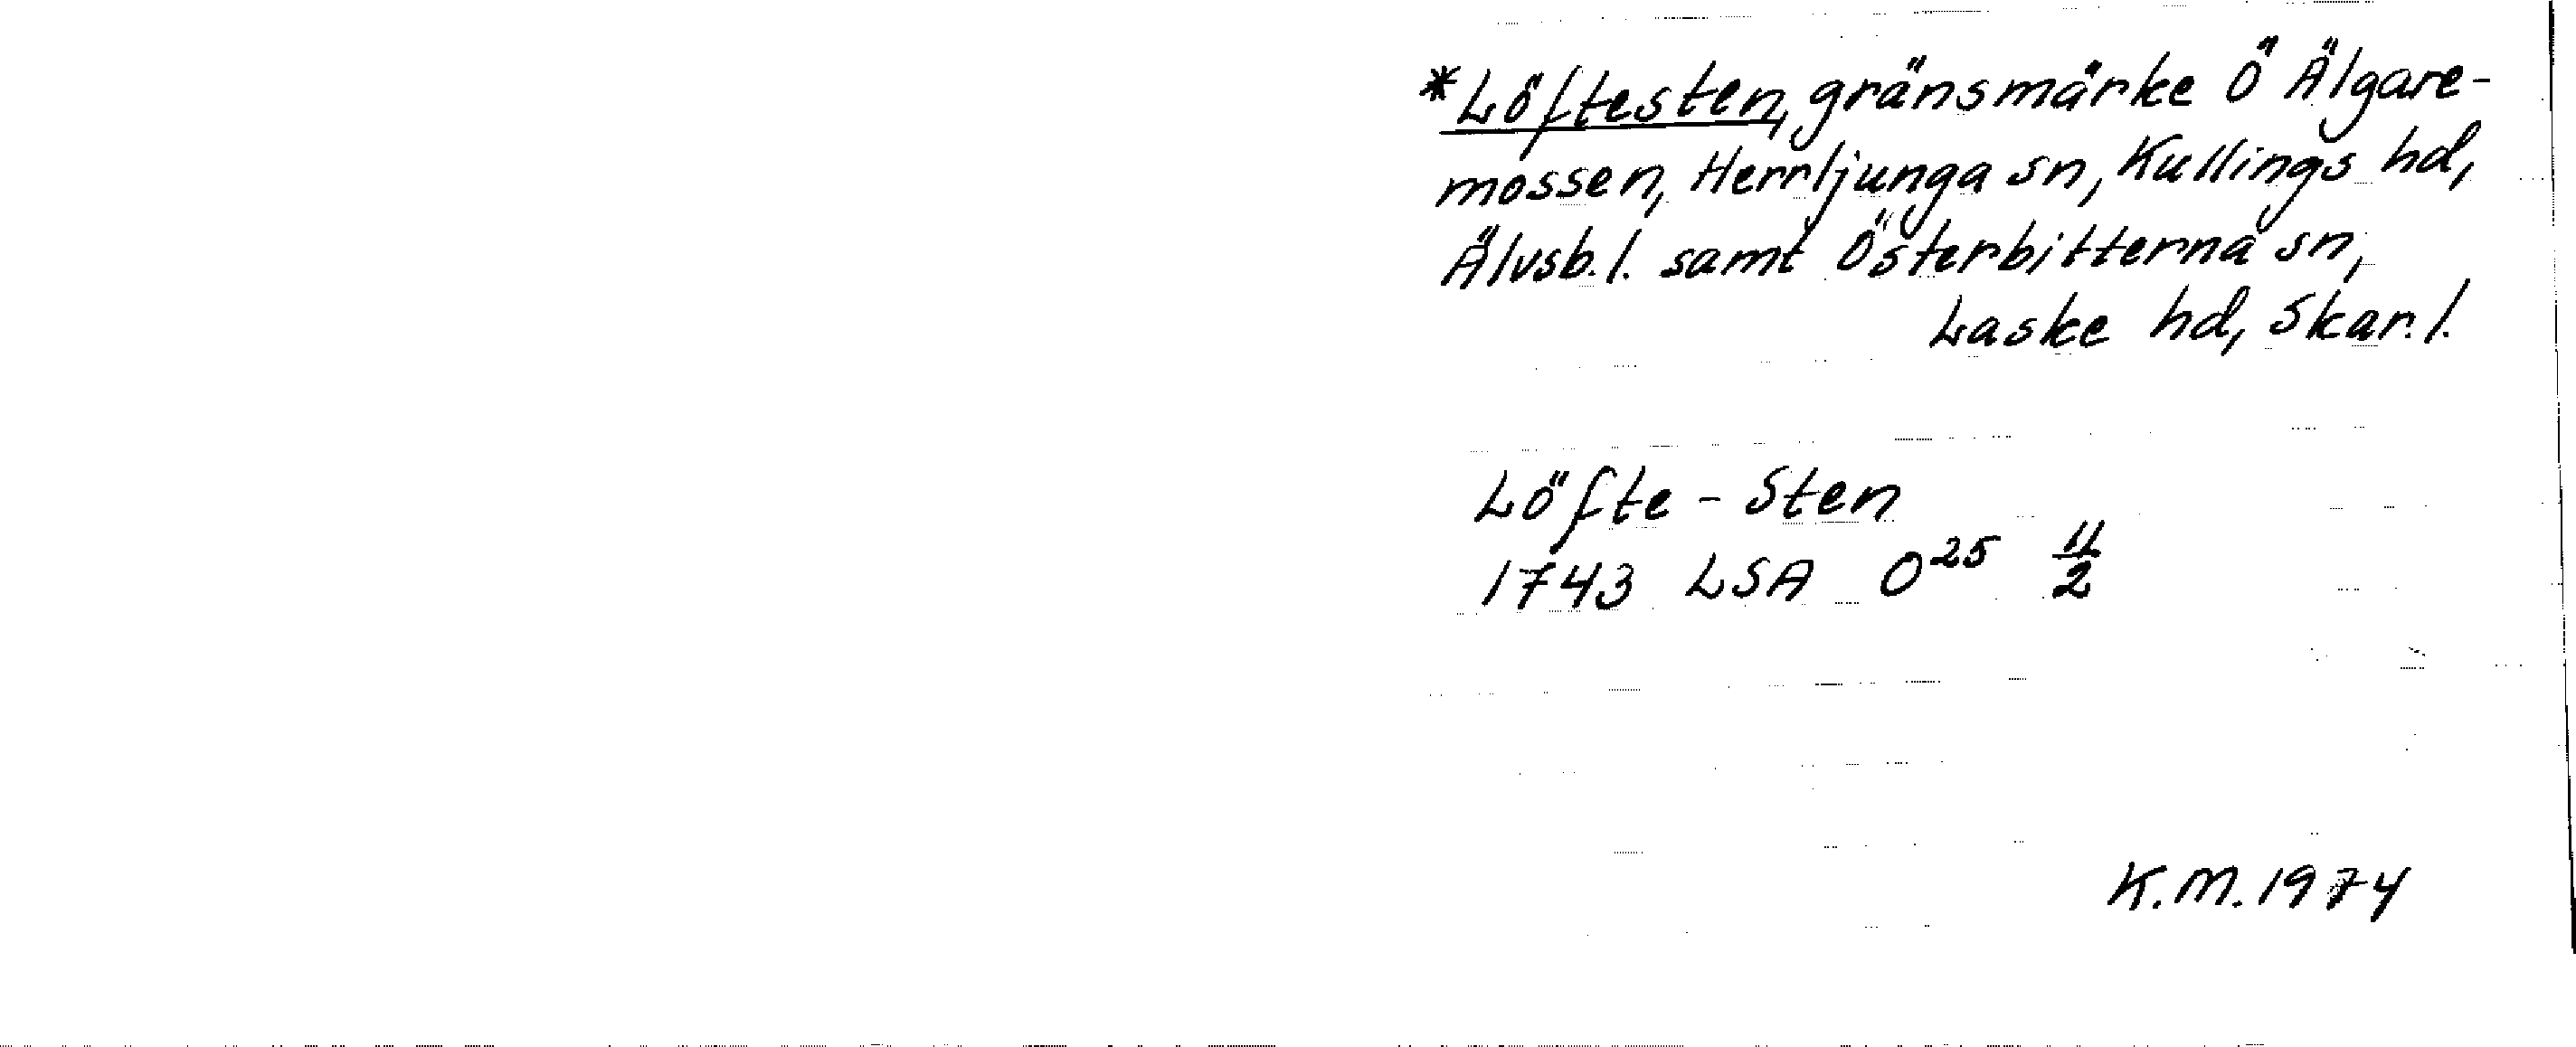 *Löftesten, gränsmärke Ö Älgare-
mossen, Herrljunga sn, Kullings hd,
Älvsb.l. samt Österbitterna sn,
Laske hd, Skar.l.
Löfte-Sten
1743 LSA O²⁵ 11/2
K.M. 1974